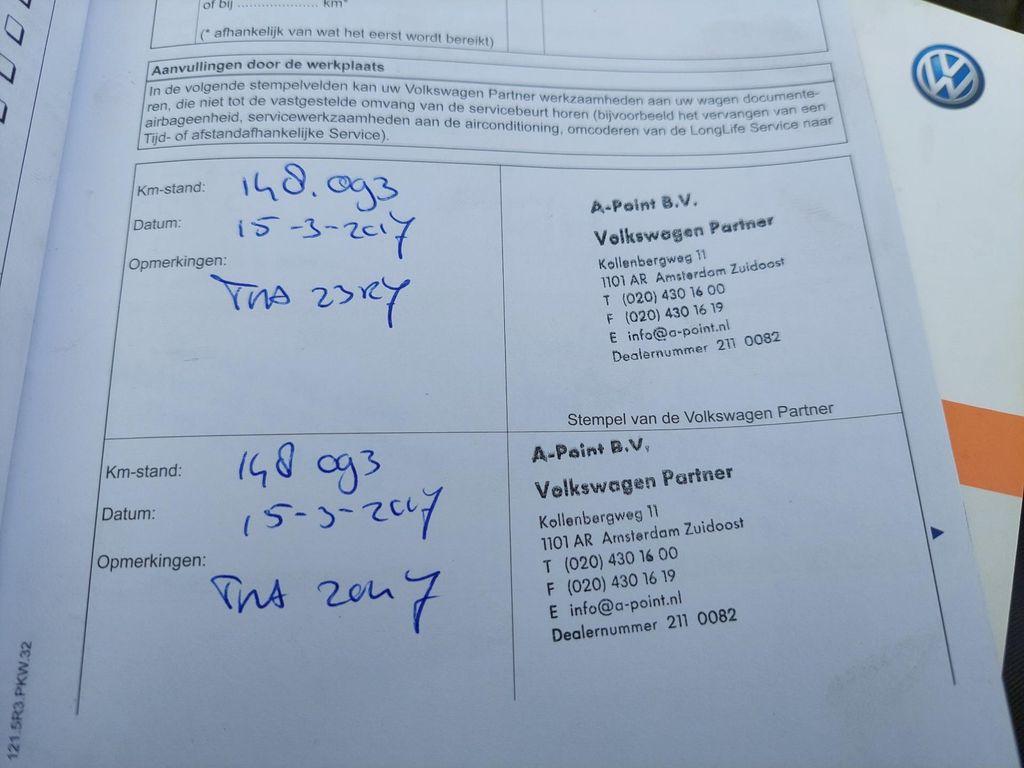 of bij .................... km*
(* afhankelijk van wat het eerst wordt bereikt)
Aanvullingen door de werkplaats
In de volgende stempelvelden kan uw Volkswagen Partner werkzaamheden aan uw wagen documente-
ren, die niet tot de vastgestelde omvang van de servicebeurt horen (bijvoorbeeld het vervangen van een
airbageenheid, servicewerkzaamheden aan de airconditioning, omcoderen van de LongLife Service naar
Tijd- of afstandafhankelijke Service).
Km-stand: 148.093
Datum: 15-3-2017
Opmerkingen:
A-Point B.V.
Volkswagen Partner
Kollenbergweg 11
1101 AR Amsterdam Zuidoost
T (020) 430 16 00
F (020) 430 16 19
E info@a-point.nl
Dealernummer 211 0082
Stempel van de Volkswagen Partner
Km-stand: 148 093
Datum: 15-3-2017
Opmerkingen:
A-Point B.V.
Volkswagen Partner
Kollenbergweg 11
1101 AR Amsterdam Zuidoost
T (020) 430 16 00
F (020) 430 16 19
E info@a-point.nl
Dealernummer 211 0082
121.5R3.PKW.32